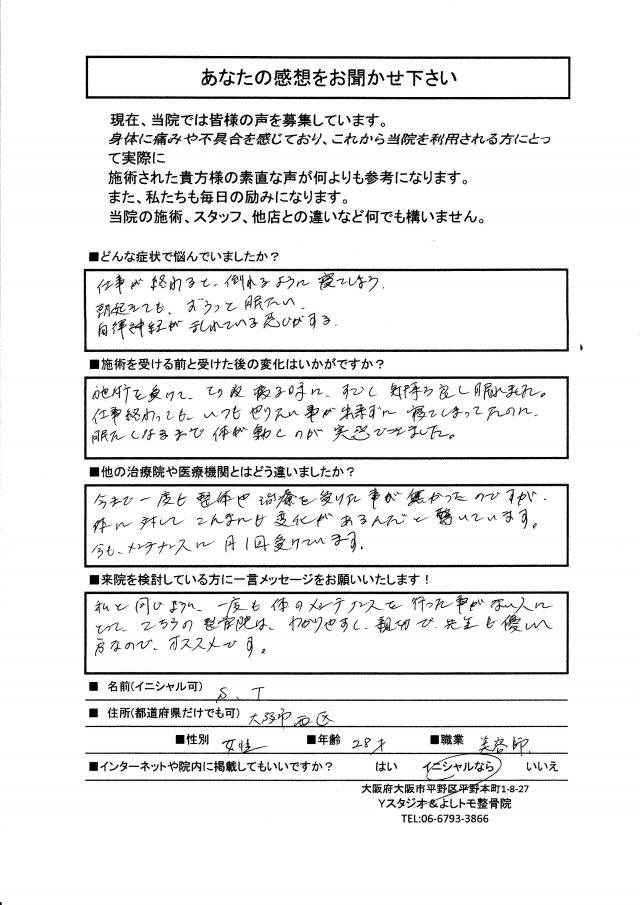 あなたの感想をお聞かせ下さい
現在、当院では皆様の声を募集しています。
身体に痛みや不具合を感じており、これから当院を利用される方にとっ
て実際に
施術された貴方様の素直な声が何よりも参考になります。
また、私たちも毎日の励みになります。
当院の施術、スタッフ、他店との違いなど何でも構いません。
■どんな症状で悩んでいましたか？
仕事が終わると、倒れるように寝てしまう。
朝起きても、ずうっと眠たい。
自律神経が乱れている感じがする。
■施術を受ける前と受けた後の変化はいかがですか？
施術を受けて、その夜寝る時に、すごく気持ち良く眠れました。
仕事終わっても、いつもやりたい事が出来ずに寝てしまってたのに、
眠たくなるまで体が動くのが実感できました。
■他の治療院や医療機関とはどう違いましたか？
今まで一度も整体や治療を受けた事が無かったのですが、
体に対してこんなにも変化があるんだと驚いています。
今も、メンテナンスに月1回受けています。
■来院を検討している方に一言メッセージをお願いいたします！
私と同じように、一度も体のメンテナンスを行った事がない人に
とって、こちらの整骨院は、わかりやすく、親切で、先生も優しい
方なので、オススメです。
■ 名前(イニシャル可) S．T
■ 住所(都道府県だけでも可) 大阪市西区
■性別 女性 ■年齢 28才 ■職業 美容師
■インターネットや院内に掲載してもいいですか？ はい イニシャルなら いいえ
大阪府大阪市平野区平野本町1-8-27
Yスタジオ＆よしトモ整骨院
TEL:06-6793-3866